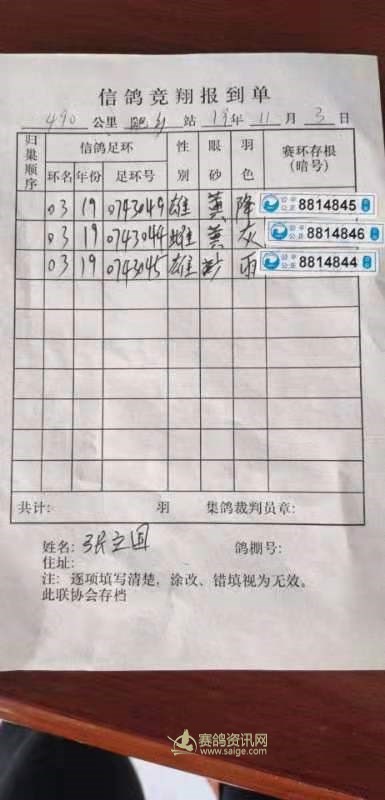 信鸽竞翔报到单
490 公里 肥乡 站 19年 11 月 3 日
归巢顺序 信鸽足环 性别 眼砂 羽色 赛环存根(暗号)
环名 年份 足环号
03 19 0743049 雄 黄 降 8814845
03 19 0743044 雌 黄 灰 8814846
03 19 0743045 雄 砂 雨 8814844
共计: 羽 集鸽裁判员章:
姓名: 张立国 鸽棚号:
住址:
注: 逐项填写清楚,涂改、错填视为无效。
此联协会存档
赛鸽资讯网
www.saige.com